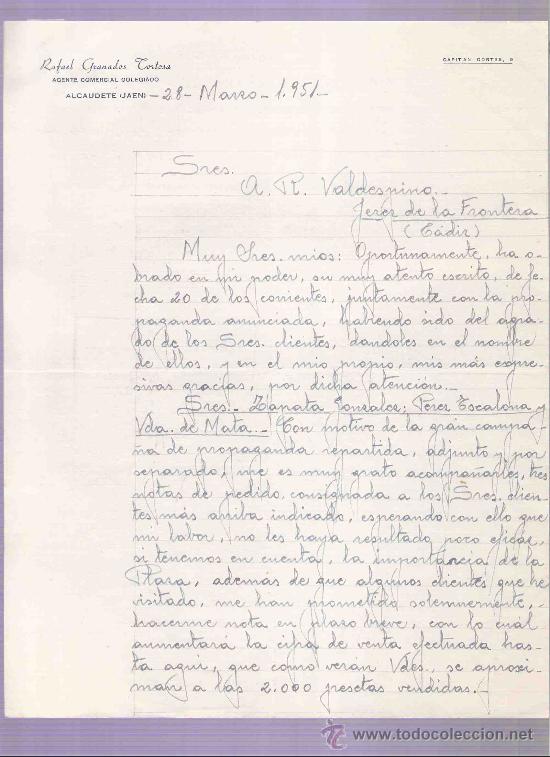 Rafael Granados Tortosa
CAPITAN CORTES, 9
AGENTE COMERCIAL COLEGIADO
ALCAUDETE (JAEN) - 28 - Marzo - 1.951-
Sres.
A. R. Valdespino.-
Jerez de la Frontera
(Cádiz)
Muy Sres. mios: Oportunamente, ha o-
brado en mi poder, su muy atento escrito, de fe-
cha 20 de los corrientes, juntamente con la pro-
paganda anunciada, habiendo sido del agra-
do de los Sres. clientes, dandoles en el nombre
de ellos, y en el mio propio, mis más expre-
sivas gracias, por dicha atención.-
Sres.- Zapata Gonzalez; Perez Escalona y
Vda. de Mata.- Con motivo de la gran campa-
ña de propaganda repartida, adjunto y por
separado, me es muy grato acompañarles, tres
notas de pedido, consignada a los Sres. clien-
tes más arriba indicado, esperando con ello que
mi labor, no les haya resultado poco eficáz,
si tenemos en cuenta, la importáncia de la
Plaza, además de que algunos clientes que he
visitado, me han prometido solemnemente, -
hacerme nota en plazo breve, con lo cuál
aumentará la cifra de venta efectuada has-
ta aquí, que como verán Vdes, se aproxi-
man a las 2.000 pesetas vendidas.-
todocoleccion.net